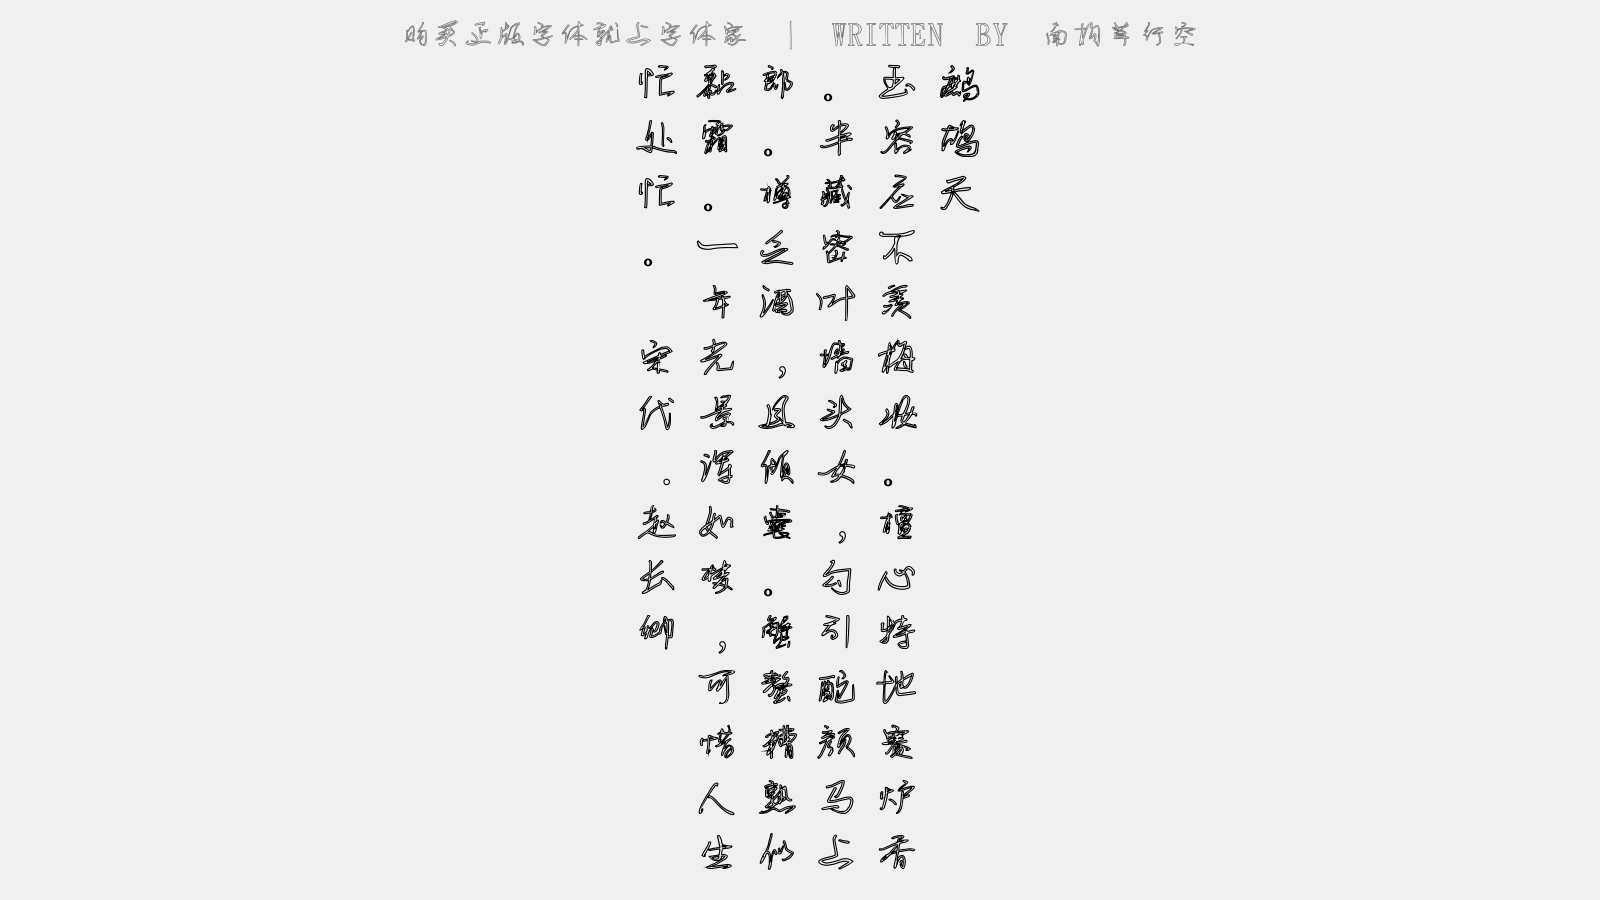 购买正版字体就上字体家 | WRITTEN BY 南构草行空
鹧鸪天
玉容应不羡梅妆。檀心特地赛炉香
。半藏密叶墙头女，勾引酡颜马上
郎。樽乏酒，且倾囊。蟹螯糟熟似
黏霜。一年光景浑如梦，可惜人生
忙处忙。
宋代。赵长卿